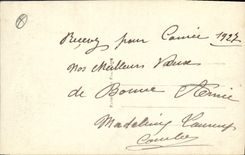 Recevez pour l'année 1927
nos meilleurs Vœux
de Bonne Année
Madeleine